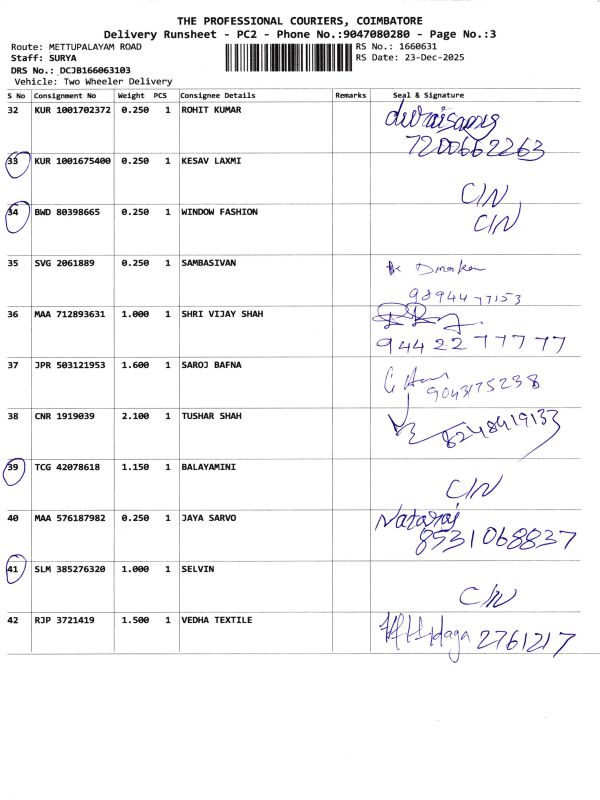 THE PROFESSIONAL COURIERS, COIMBATORE
Delivery Runsheet - PC2 - Phone No.:9047080280 - Page No.:3
Route: METTUPALAYAM ROAD RS No.: 1660631
Staff: SURYA RS Date: 23-Dec-2025
DRS No.: DCJB166063103
Vehicle: Two Wheeler Delivery
S No Consignment No Weight PCS Consignee Details Remarks Seal & Signature
32 KUR 1001702372 0.250 1 ROHIT KUMAR
7200662263
33 KUR 1001675400 0.250 1 KESAV LAXMI C/N
34 BWD 80398665 0.250 1 WINDOW FASHION C/N
35 SVG 2061889 0.250 1 SAMBASIVAN
9894477153
36 MAA 712893631 1.000 1 SHRI VIJAY SHAH
9442277777
37 JPR 503121953 1.600 1 SAROJ BAFNA
9043175238
38 CNR 1919039 2.100 1 TUSHAR SHAH
8248419133
39 TCG 42078618 1.150 1 BALAYAMINI C/N
40 MAA 576187982 0.250 1 JAYA SARVO Nataraj
8531068837
41 SLM 385276320 1.000 1 SELVIN C/N
42 RJP 3721419 1.500 1 VEDHA TEXTILE 2761217